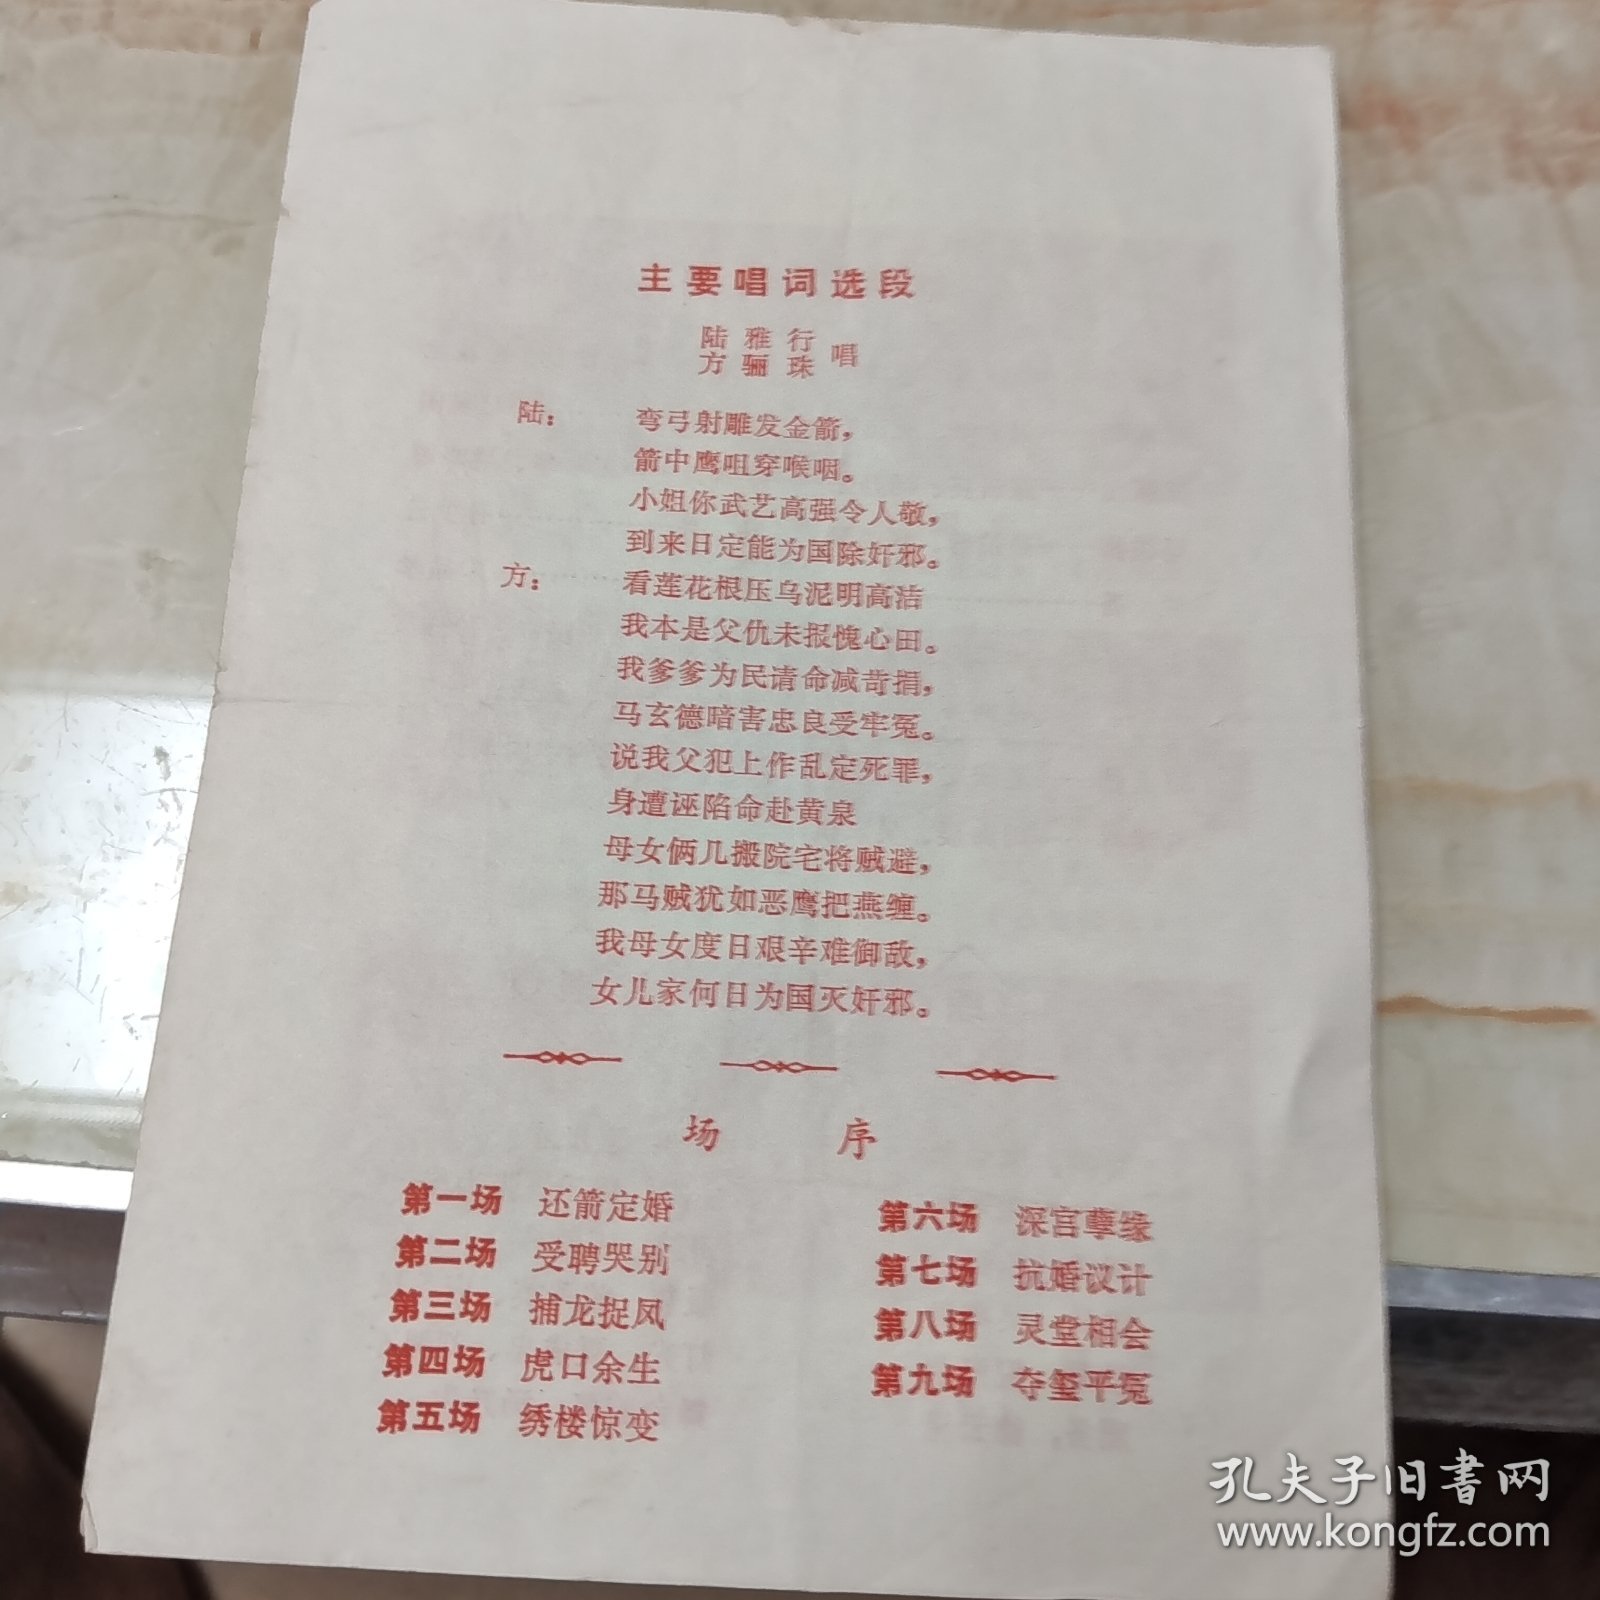 主要唱词选段
陆雅行
方骊珠 唱
陆： 弯弓射雕发金箭，
箭中鹰咀穿喉咽。
小姐你武艺高强令人敬，
到来日定能为国除奸邪。
方： 看莲花根压乌泥明高洁
我本是父仇未报愧心田。
我爹爹为民请命减苛捐，
马玄德暗害忠良受牢冤。
说我父犯上作乱定死罪，
身遭诬陷命赴黄泉
母女俩几搬院宅将贼避，
那马贼犹如恶鹰把燕缠。
我母女度日艰辛难御敌，
女儿家何日为国灭奸邪。
场 序
第一场 还箭定婚
第二场 受聘哭别
第三场 捕龙捉凤
第四场 虎口余生
第五场 绣楼惊变
第六场 深宫孽缘
第七场 抗婚议计
第八场 灵堂相会
第九场 夺玺平冤
孔夫子旧书网
www.kongfz.com